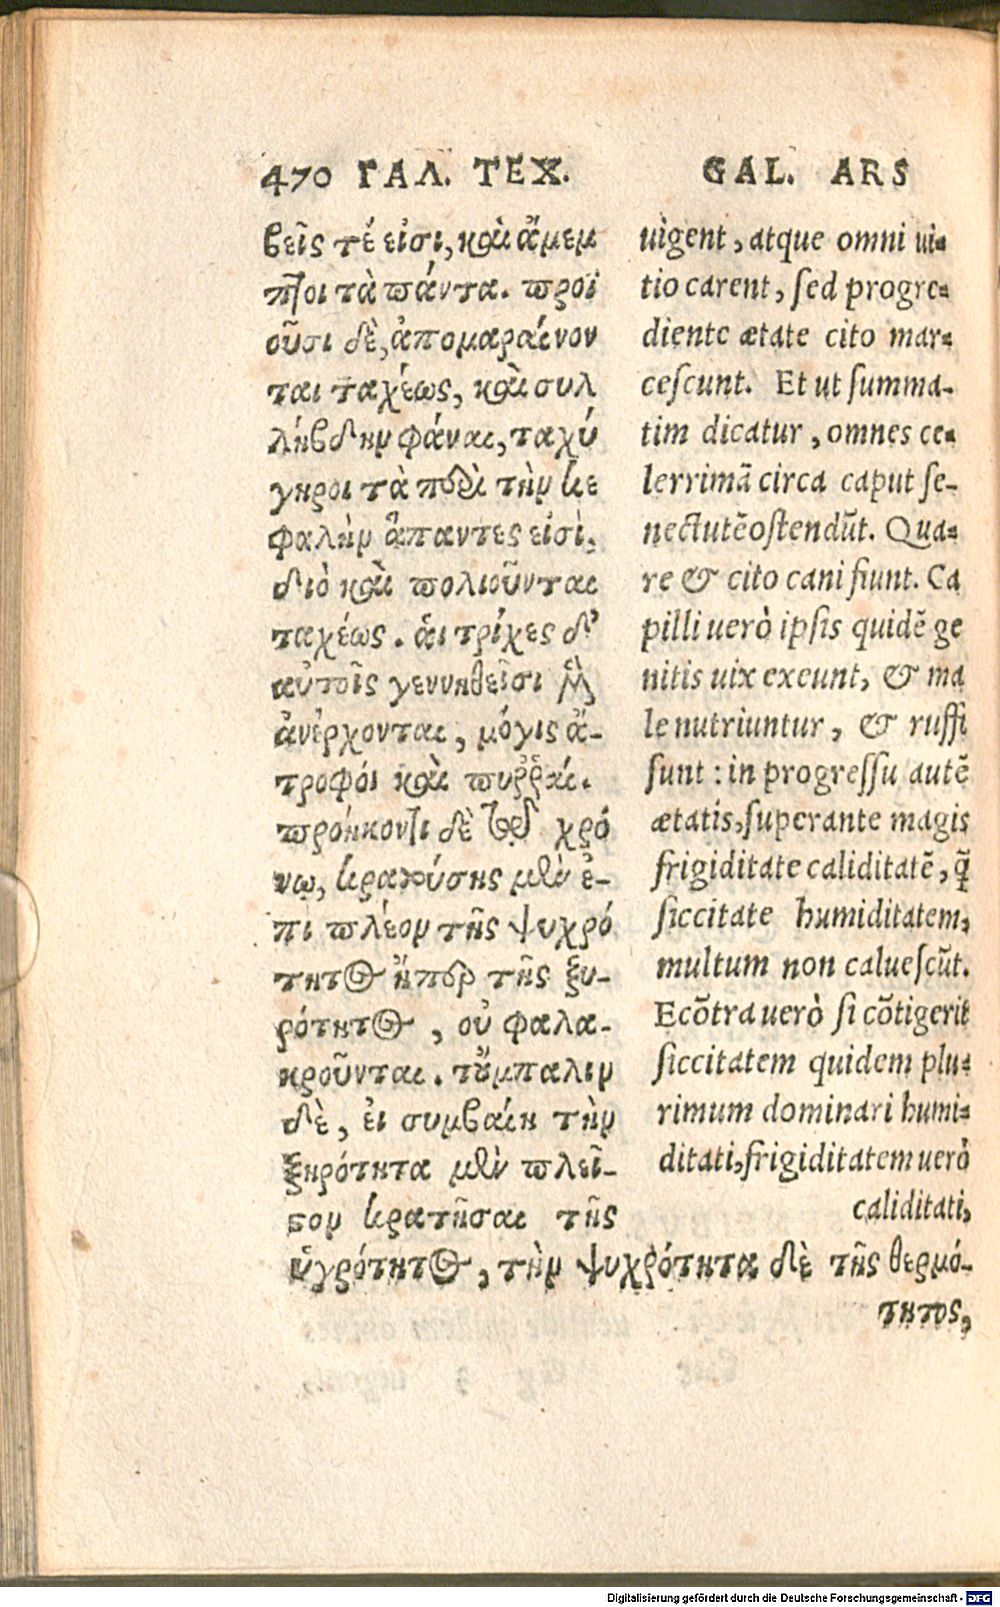 470 ΓΑΛ. ΤΕΧ.
βεῖς τέ εἰσι, καὶ ἄμεμ
πτοι τὰ πάντα. προϊ
οῦσι δὲ, ἀπομαραίνον
ται ταχέως, καὶ συλ
λήβδην φάναι, ταχύ
γηροι τὰ περὶ τὴν κε
φαλὴν ἅπαντες εἰσὶ,
διὸ καὶ πολιοῦνται
ταχέως. αἱ τρίχες δ'
αὐτοῖς γεννηθεῖσι
ἀνέρχονται, μόγις ἄ-
τροφοί καὶ πυῤῥαί.
προήκοντι δὲ τῷ χρό
νῳ, κρατύσης μὲν ἐ-
πι πλέον τῆς ψυχρό
τητος ἤπερ τῆς ξη-
ρότητος, οὐ φαλα-
κροῦνται. τοὔμπαλιν
δὲ, εἰ συμβαίη τὴν
ξηρότητα μὲν πλεῖ-
ςον κρατῆσαι τῆς
ὑγρότητος, τὴν ψυχρότητα δὲ τῆς θερμό-
τητος,
GAL. ARS
uigent, atque omni ui-
tio carent, sed progre-
diente ætate cito mar-
cescunt. Et ut summa-
tim dicatur, omnes ce-
lerrimã circa caput se-
nectutẽ ostendũt. Qua-
re & cito cani fiunt. Ca
pilli uerò ipsis quidẽ ge
nitis uix exeunt, & ma
le nutriuntur, & ruffi
sunt: in progressu autẽ
ætatis, superante magis
frigiditate caliditatẽ, q̃
siccitate humiditatem,
multum non caluescũt.
Ecõtra uerò si cõtigerit
siccitatem quidem plu-
rimum dominari humi-
ditati, frigiditatem uerò
caliditati,
Digitalisierung gefördert durch die Deutsche Forschungsgemeinschaft - DFG